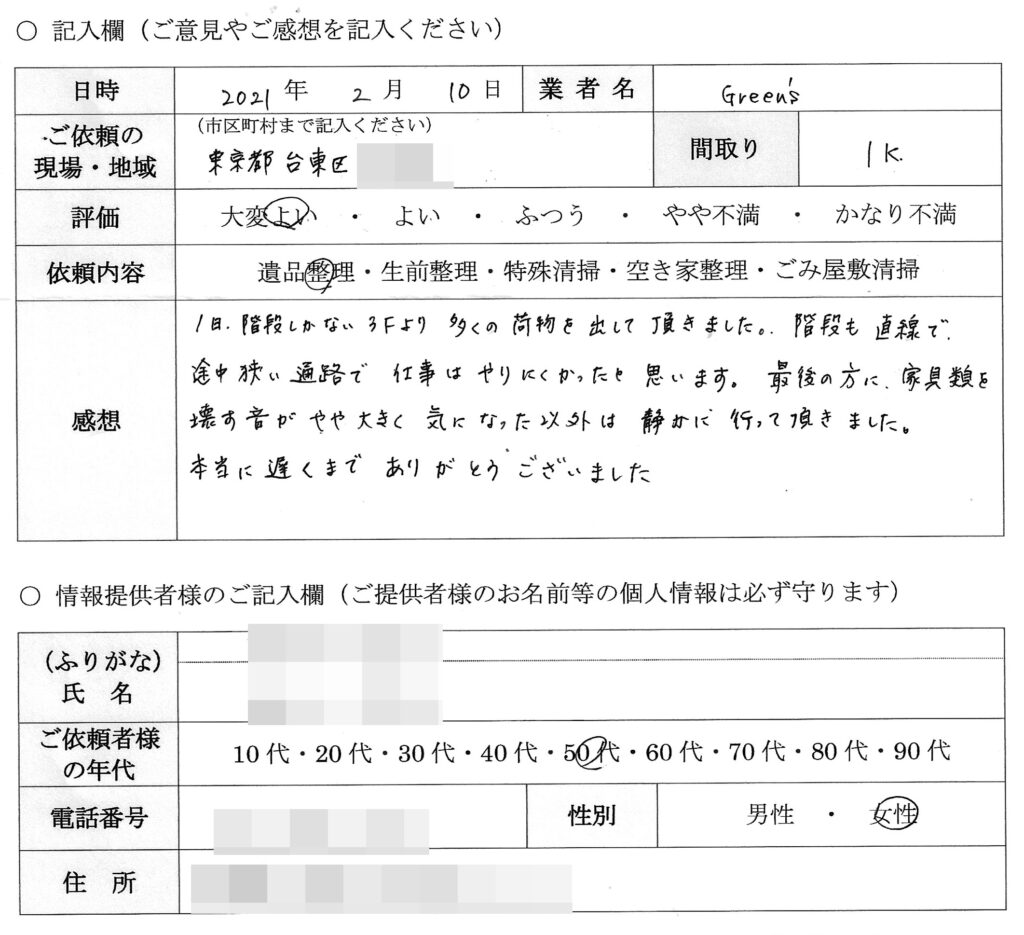 ○ 記入欄（ご意見やご感想を記入ください）
日時 2021 年 2 月 10 日 業者名 Green's
ご依頼の現場・地域 （市区町村まで記入ください） 間取り 1K.
東京都 台東区
評価 大変よい ・ よい ・ ふつう ・ やや不満 ・ かなり不満
依頼内容 遺品整理・生前整理・特殊清掃・空き家整理・ごみ屋敷清掃
感想
1日、階段しかない3Fより 多くの荷物を出して頂きました。階段も直線で、
途中狭い通路で 仕事はやりにくかったと思います。最後の方に、家具類を
壊す音がやや大きく気になった以外は 静かに行って頂きました。
本当に遅くまで ありがとうございました
○ 情報提供者様のご記入欄（ご提供者様のお名前等の個人情報は必ず守ります）
（ふりがな）
氏 名
ご依頼者様の年代 10代・20代・30代・40代・50代・60代・70代・80代・90代
電話番号 性別 男性 ・ 女性
住 所